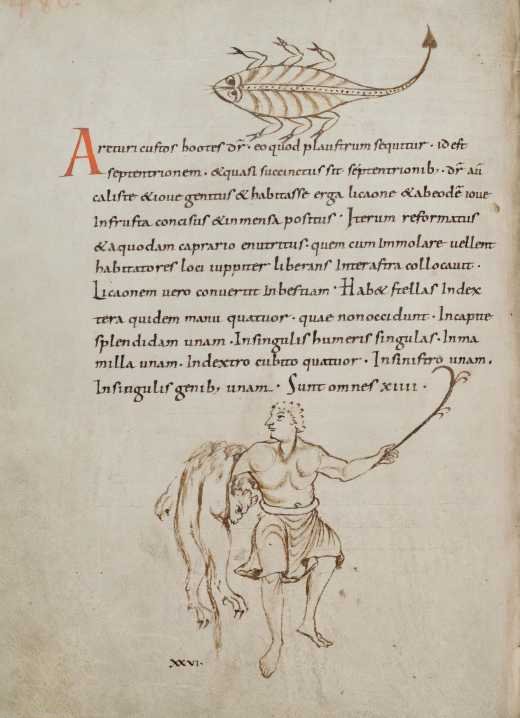 Arcturi custos bootes dr̄. eo quod plaustrum sequitur. id est
septentrionem. & quasi succinctus sit septentrionib; dr̄ aū
caliste & ioue genitus & habitasse erga licaone & ab eodē ioue
In frusta concisus & in mensa positus. Iterum reformatus
& a quodam caprario enutritus. quem cum Immolare vellent
habitatores loci iuppiter liberans Inter astra collocauit.
Licaonem uero conuertit In bestiam. Hab& stellas In dex
tera quidem manu quatuor. quae non occidunt. In capite
splendidam unam. In singulis humeris singulas. In ma
milla unam. In dextro cubito quatuor. In sinistro unam.
In singulis genib; unam. Sunt omnes xiiii.
xxvi.